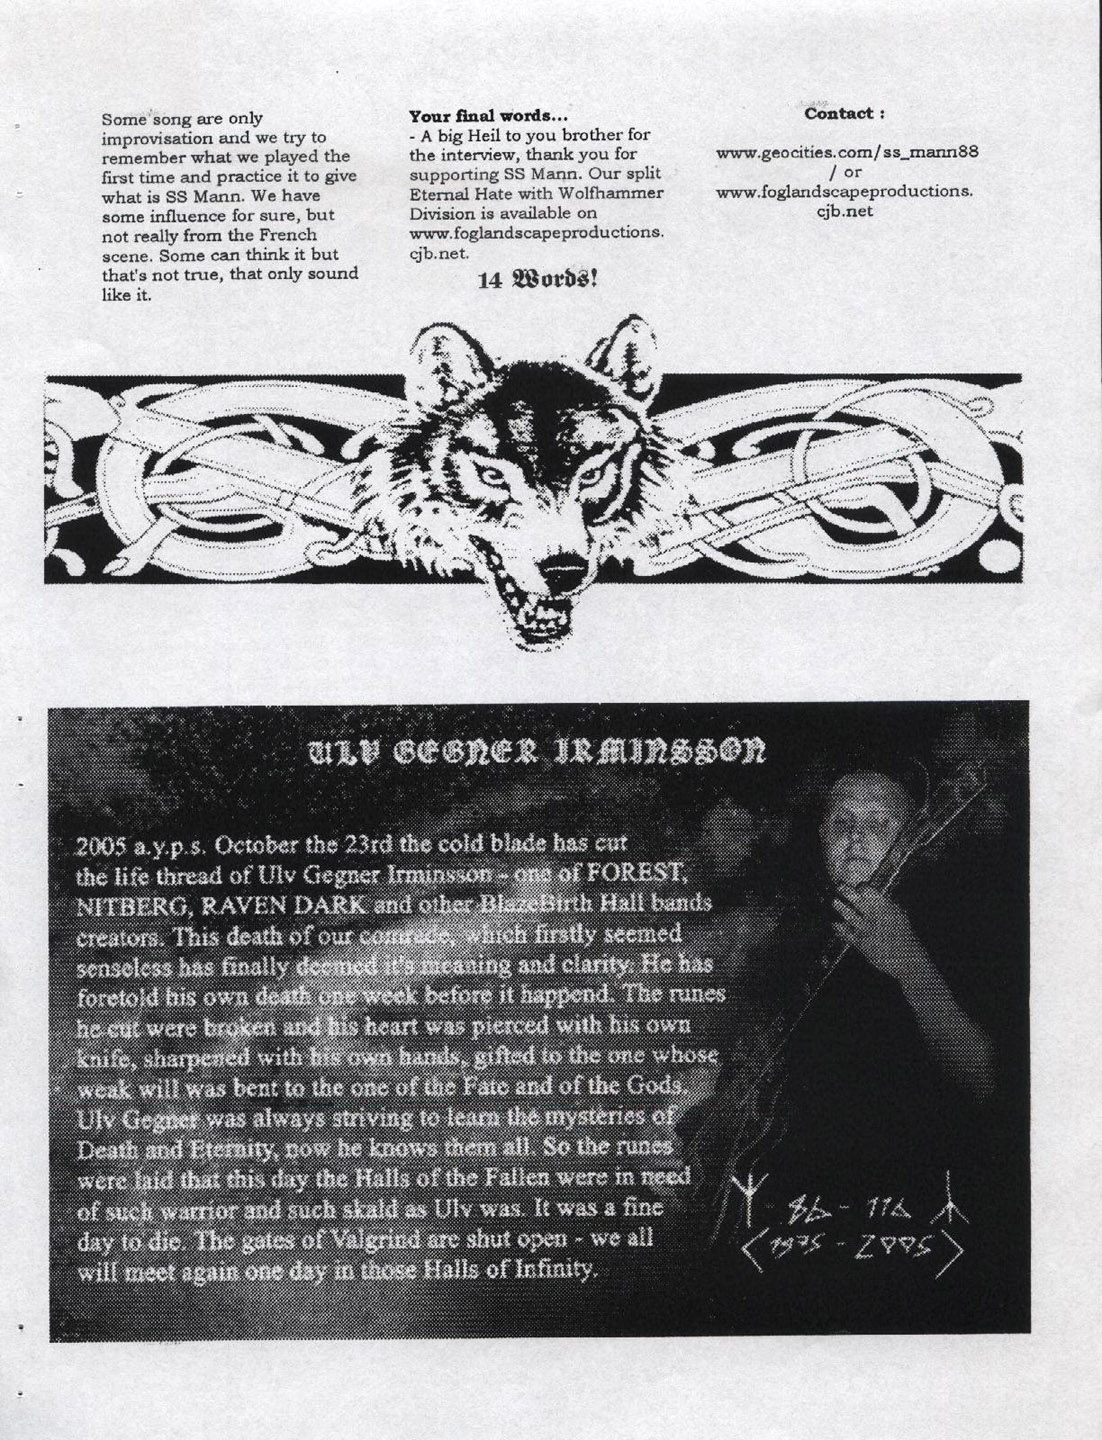 Some song are only
improvisation and we try to
remember what we played the
first time and practice it to give
what is SS Mann. We have
some influence for sure, but
not really from the French
scene. Some can think it but
that's not true, that only sound
like it.
Your final words...
- A big Heil to you brother for
the interview, thank you for
supporting SS Mann. Our split
Eternal Hate with Wolfhammer
Division is available on
www.foglandscapeproductions.
cjb.net.
14 Words!
Contact :
www.geocities.com/ss_mann88
/ or
www.foglandscapeproductions.
cjb.net
ULV GEGNER IRMINSSON
2005 a.y.p.s. October the 23rd the cold blade has cut
the life thread of Ulv Gegner Irminsson - one of FOREST,
NITBERG, RAVEN DARK and other BlazeBirth Hall bands
creators. This death of our comrade, which firstly seemed
senseless has finally deemed it's meaning and clarity. He has
foretold his own death one week before it happend. The runes
he cut were broken and his heart was pierced with his own
knife, sharpened with his own hands, gifted to the one whose
weak will was bent to the one of the Fate and of the Gods.
Ulv Gegner was always striving to learn the mysteries of
Death and Eternity, now he knows them all. So the runes
were laid that this day the Halls of the Fallen were in need
of such warrior and such skald as Ulv was. It was a fine
day to die. The gates of Valgrind are shut open - we all
will meet again one day in those Halls of Infinity.
ᛉ - 86 - 116 ᛦ
<1975 - 2005>